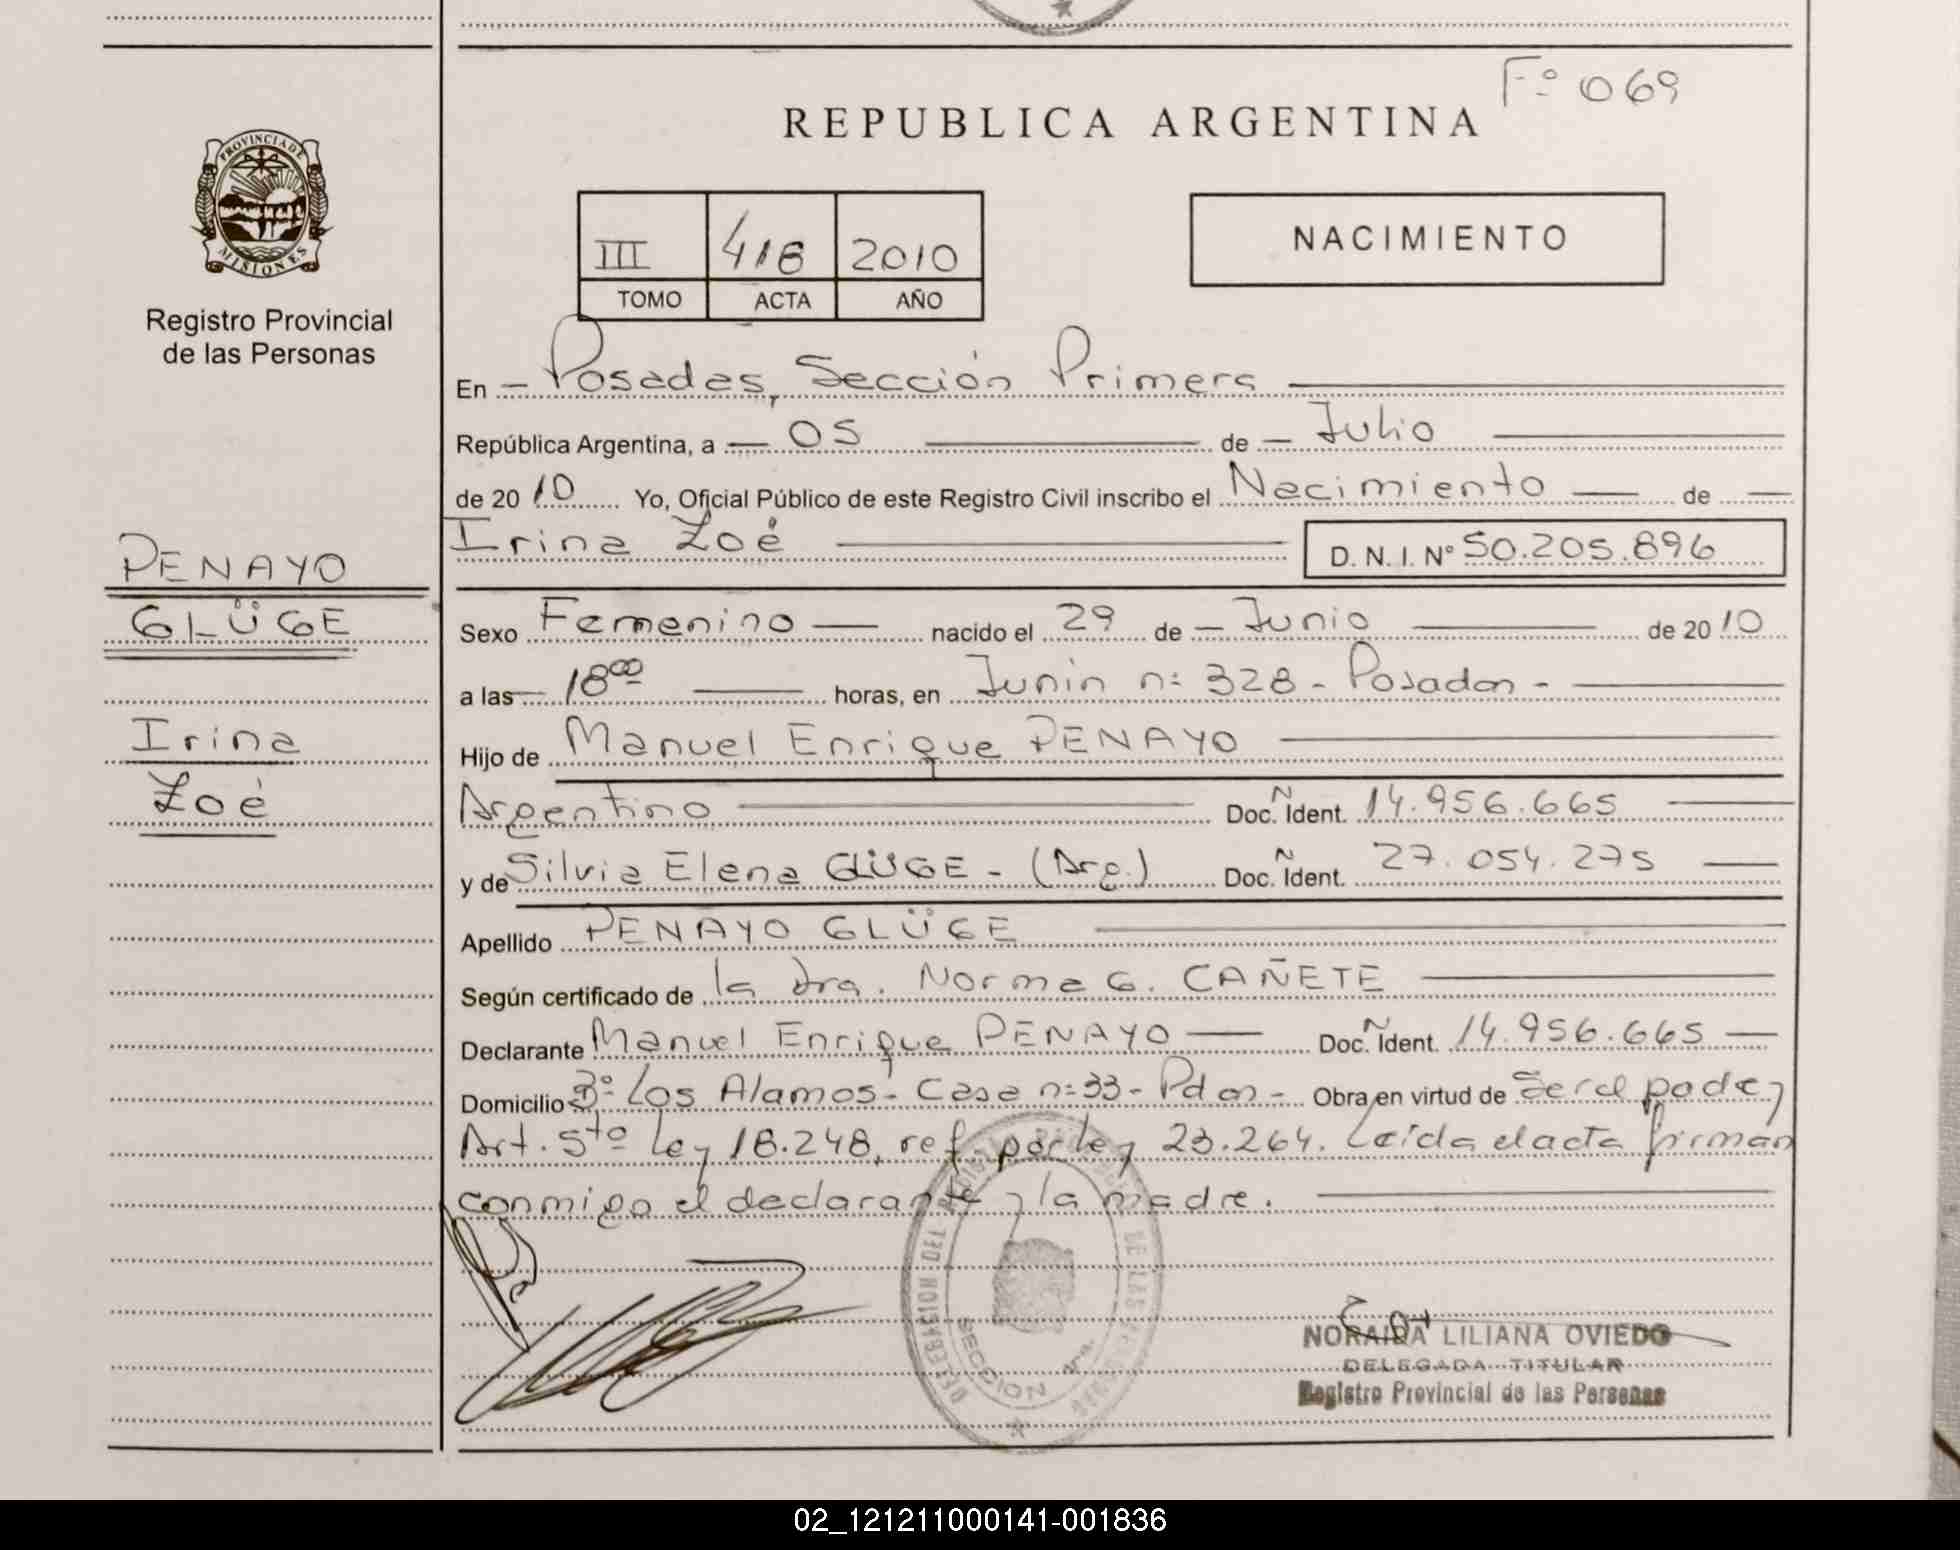 Fº 069
REPUBLICA ARGENTINA
PROVINCIA DE
MISIONES
Registro Provincial
de las Personas
III 418 2010
TOMO ACTA AÑO
NACIMIENTO
En - Posadas, Sección Primera
República Argentina, a - 05 de - Julio
de 2010 Yo, Oficial Público de este Registro Civil inscribo el Nacimiento - de -
Irina Zoé D. N. I. Nº 50.205.896
PENAYO
GLÜGE
Irina
Zoé
Sexo Femenino - nacido el 29 de - Junio de 2010
a las - 18⁰⁰ horas, en Junín nº 328 - Posadas -
Hijo de Manuel Enrique PENAYO
Argentino Doc. Ñ Ident. 14.956.665
y de Silvia Elena GLÜGE - (Arg.) Doc. Ñ Ident. 27.054.275
Apellido PENAYO GLÜGE
Según certificado de la Dra. Norma G. CAÑETE
Declarante Manuel Enrique PENAYO Doc. Ñ Ident. 14.956.665
Domicilio Bº Los Alamos - Casa nº 33 - Pdas - Obra en virtud de ser el padre y
Art. 5to Ley 18.248, ref. por ley 23.264. Leída el acta firman
conmigo el declarante y la madre.
NORAIDA LILIANA OVIEDO
DELEGADA TITULAR
Registro Provincial de las Personas
SECCION
02_121211000141-001836